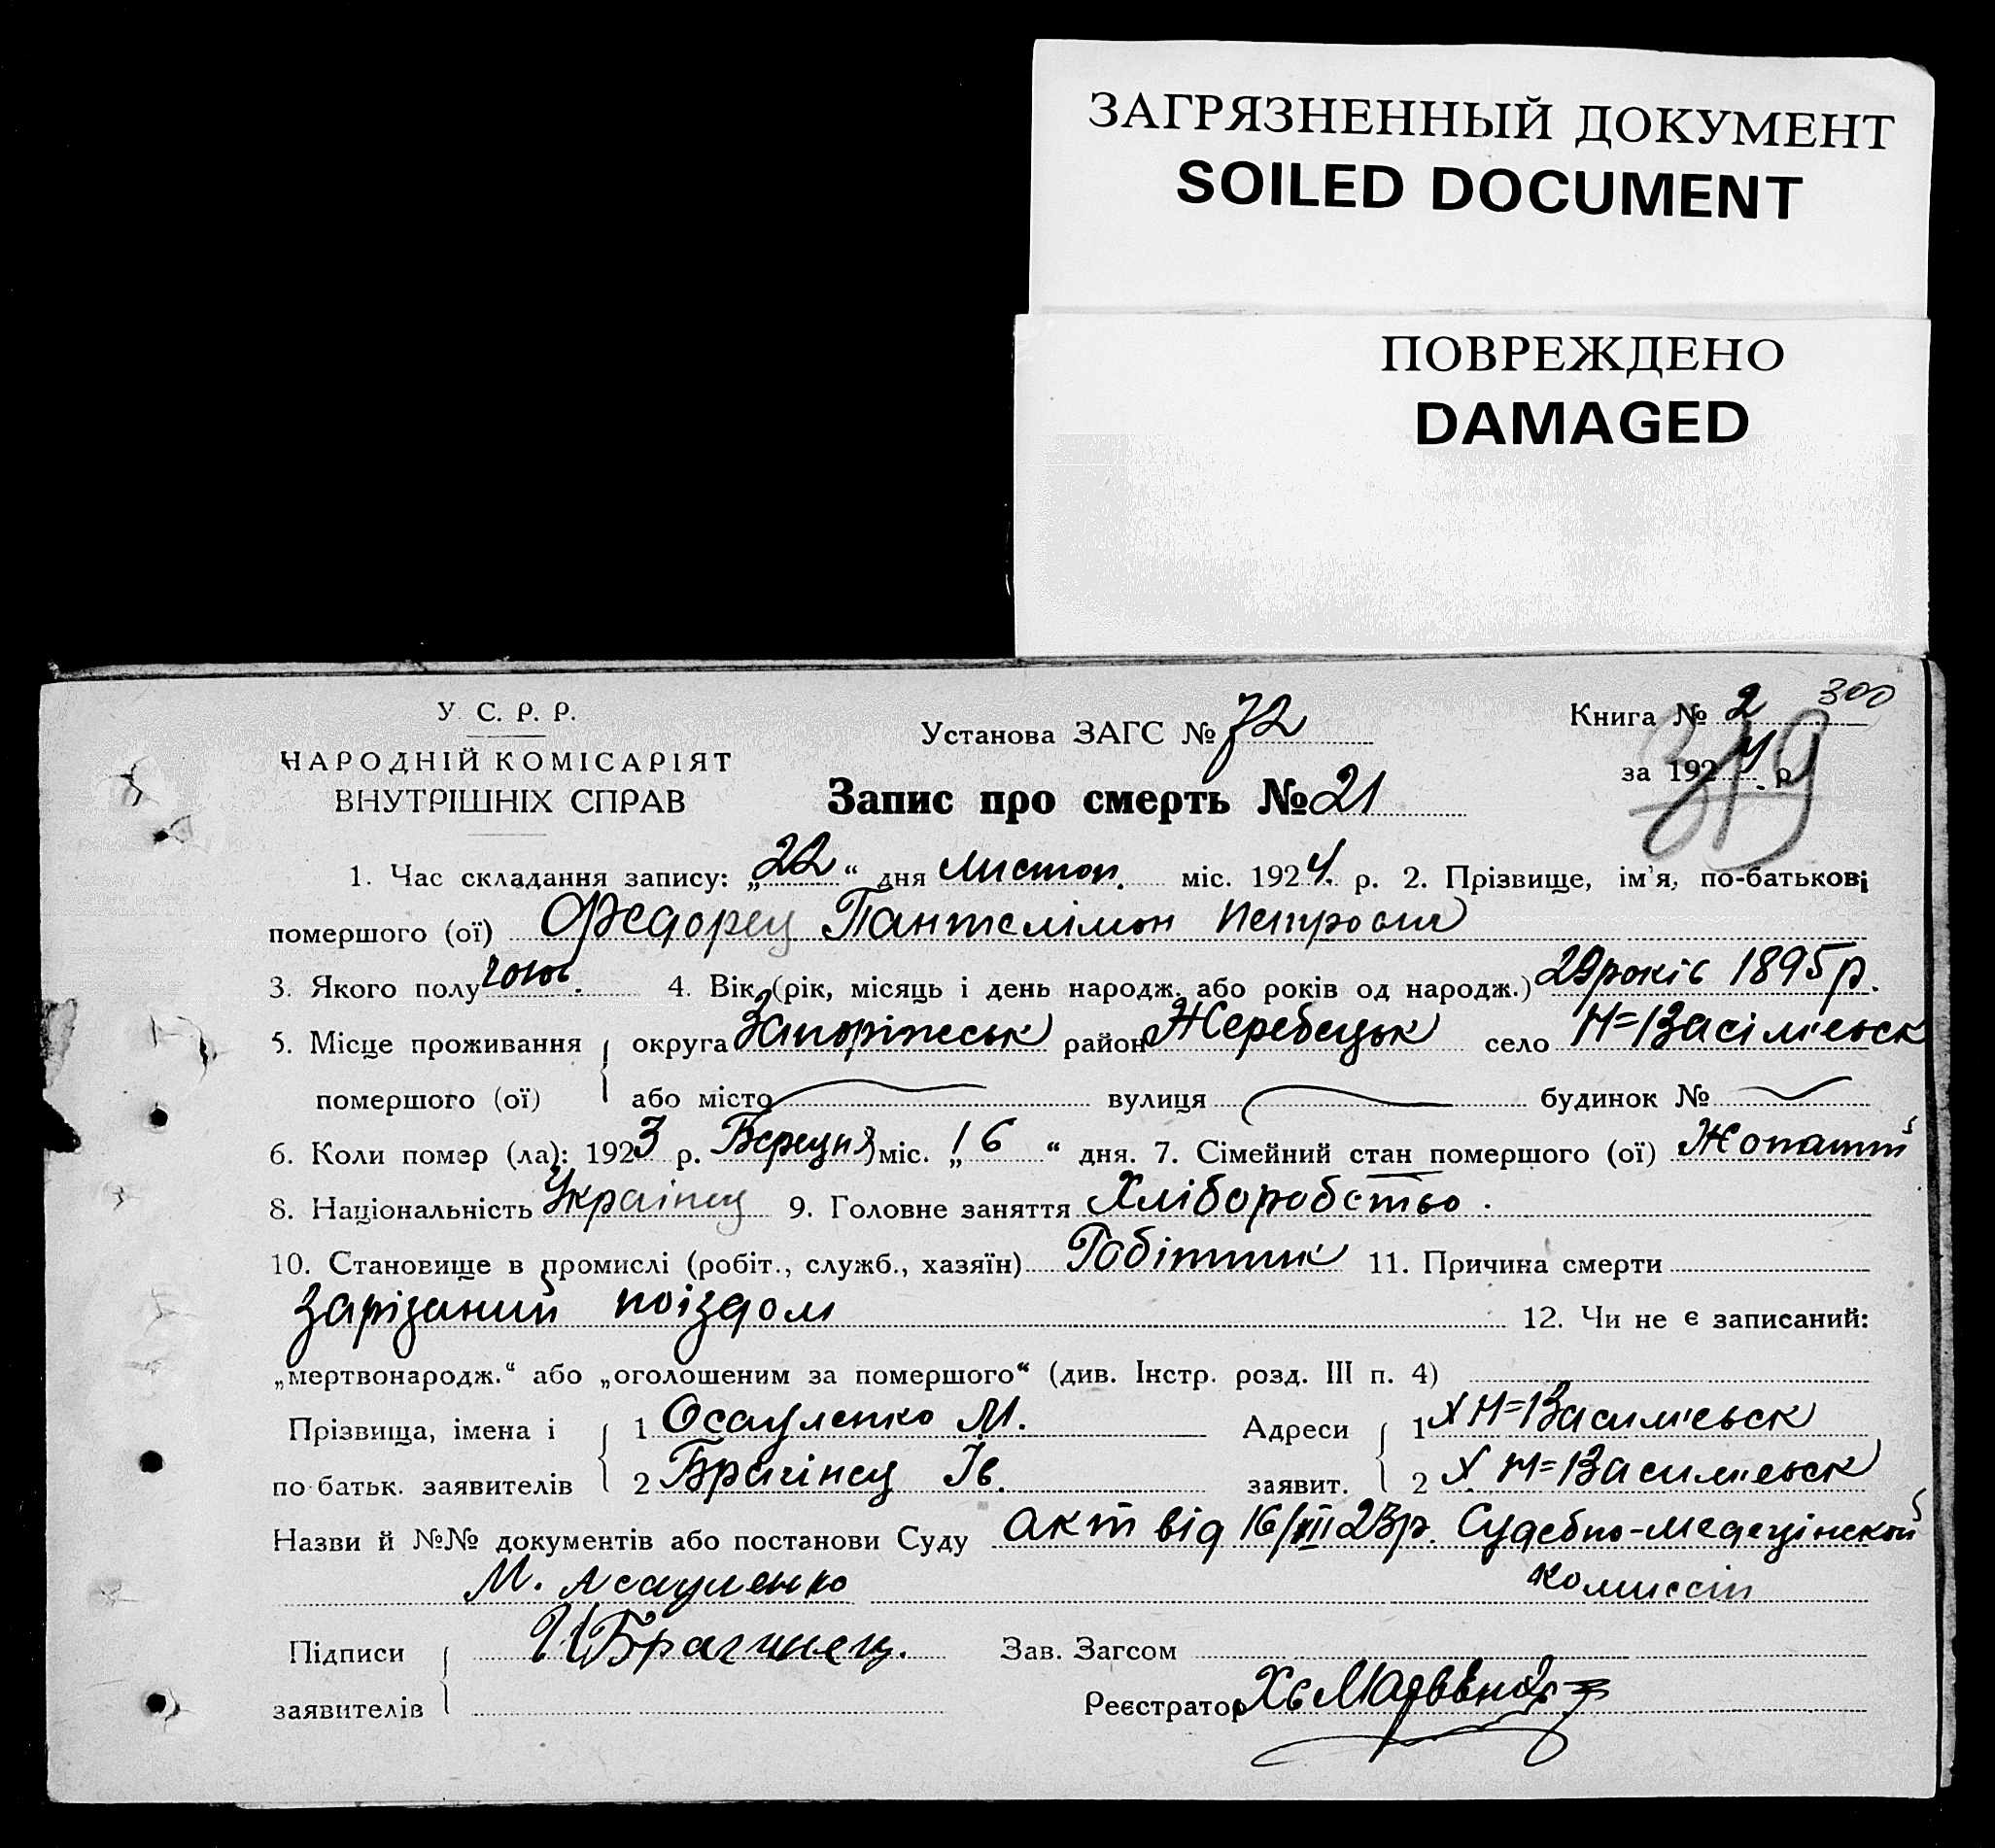 ЗАГРЯЗНЕННЫЙ ДОКУМЕНТ
SOILED DOCUMENT
ПОВРЕЖДЕНО
DAMAGED
300
У. С. Р. Р.
НАРОДНІЙ КОМІСАРІЯТ
ВНУТРІШНІХ СПРАВ
Установа ЗАГС № 72
Книга № 2
за 1924 р.
319
Запис про смерть № 21
1. Час складання запису: „22“ дня листоп. міс. 1924. р. 2. Прізвище, ім'я, по-батькові
помершого (ої) Федорец Пантелімон Петрович
3. Якого полу чолов. 4. Вік (рік, місяць і день народж. або років од народж.) 29 років 1895 р.
5. Місце проживання округа Запоріжськ район Жеребецьк село Н=Васілієвск
помершого (ої) або місто вулиця будинок №
6. Коли помер (ла): 1923 р. Березня міс. „16“ дня. 7. Сімейний стан помершого (ої) Жонатий
8. Національність Українец 9. Головне заняття Хліборобство.
10. Становище в промислі (робіт., служб., хазяїн) Робітник 11. Причина смерти
зарізаний поїздом 12. Чи не є записаний:
„мертвонародж.“ або „оголошеним за помершого“ (див. Інстр. розд. III п. 4)
Прізвища, імена і 1 Осауленко М. Адреси 1 Х Н=Василиевск
по батьк. заявителів 2 Брагінец Ів. заявит. 2 Х Н=Василиевск
Назви й №№ документів або постанови Суду Акт від 16/III 23р. Судебно-медецінской
М. Асауленко комиссіи
Підписи И Брагинец. Зав. Загсом
заявителів Реєстратор